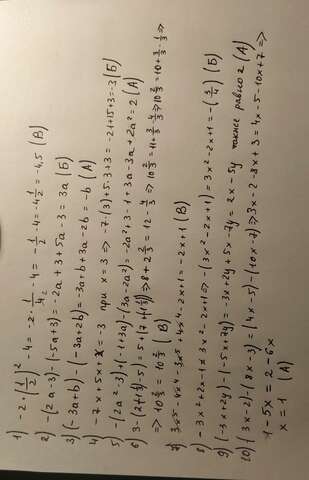 1) -2·(1/2)² -4 = -2·1/4 -4 = -1/2 -4 = -4 1/2 = -4,5 (В)
2) -(2a-3) - (-5a+3) = -2a+3+5a-3 = 3a (Б)
3) (-3a+b) - (-3a+2b) = -3a+b+3a-2b = -b (А)
4) -7x+5x+ = -3 при x=3 => -7·(3)+5·3+3 = -21+15+3 = -3 (Б)
5) -(2a²-3)+(-1+3a)-(3a-2a²) = -2a²+3-1+3a-3a+2a² = 2 (А)
=> 10 2/3 = 10 2/3 (В)
7) 3x⁵-4x⁴-3x⁵+4x⁴-2x+1 = -2x+1 (В)
8) -3x²+2x-1 = 3x²-2x+1 => -(3x²-2x+1) = 3x²-2x+1 = -(3/4) (Б)
9) (-3x+2y)-(-5x+7y) = -3x+2y+5x-7y = 2x-5y также равно 2 (А)
10) (3x-2)-(8x-3) = (4x-5)-(10x-7) => 3x-2-8x+3 = 4x-5-10x+7 =>
1-5x = 2-6x
x = 1 (А)